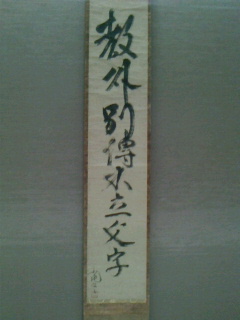 教外別傳不立文字